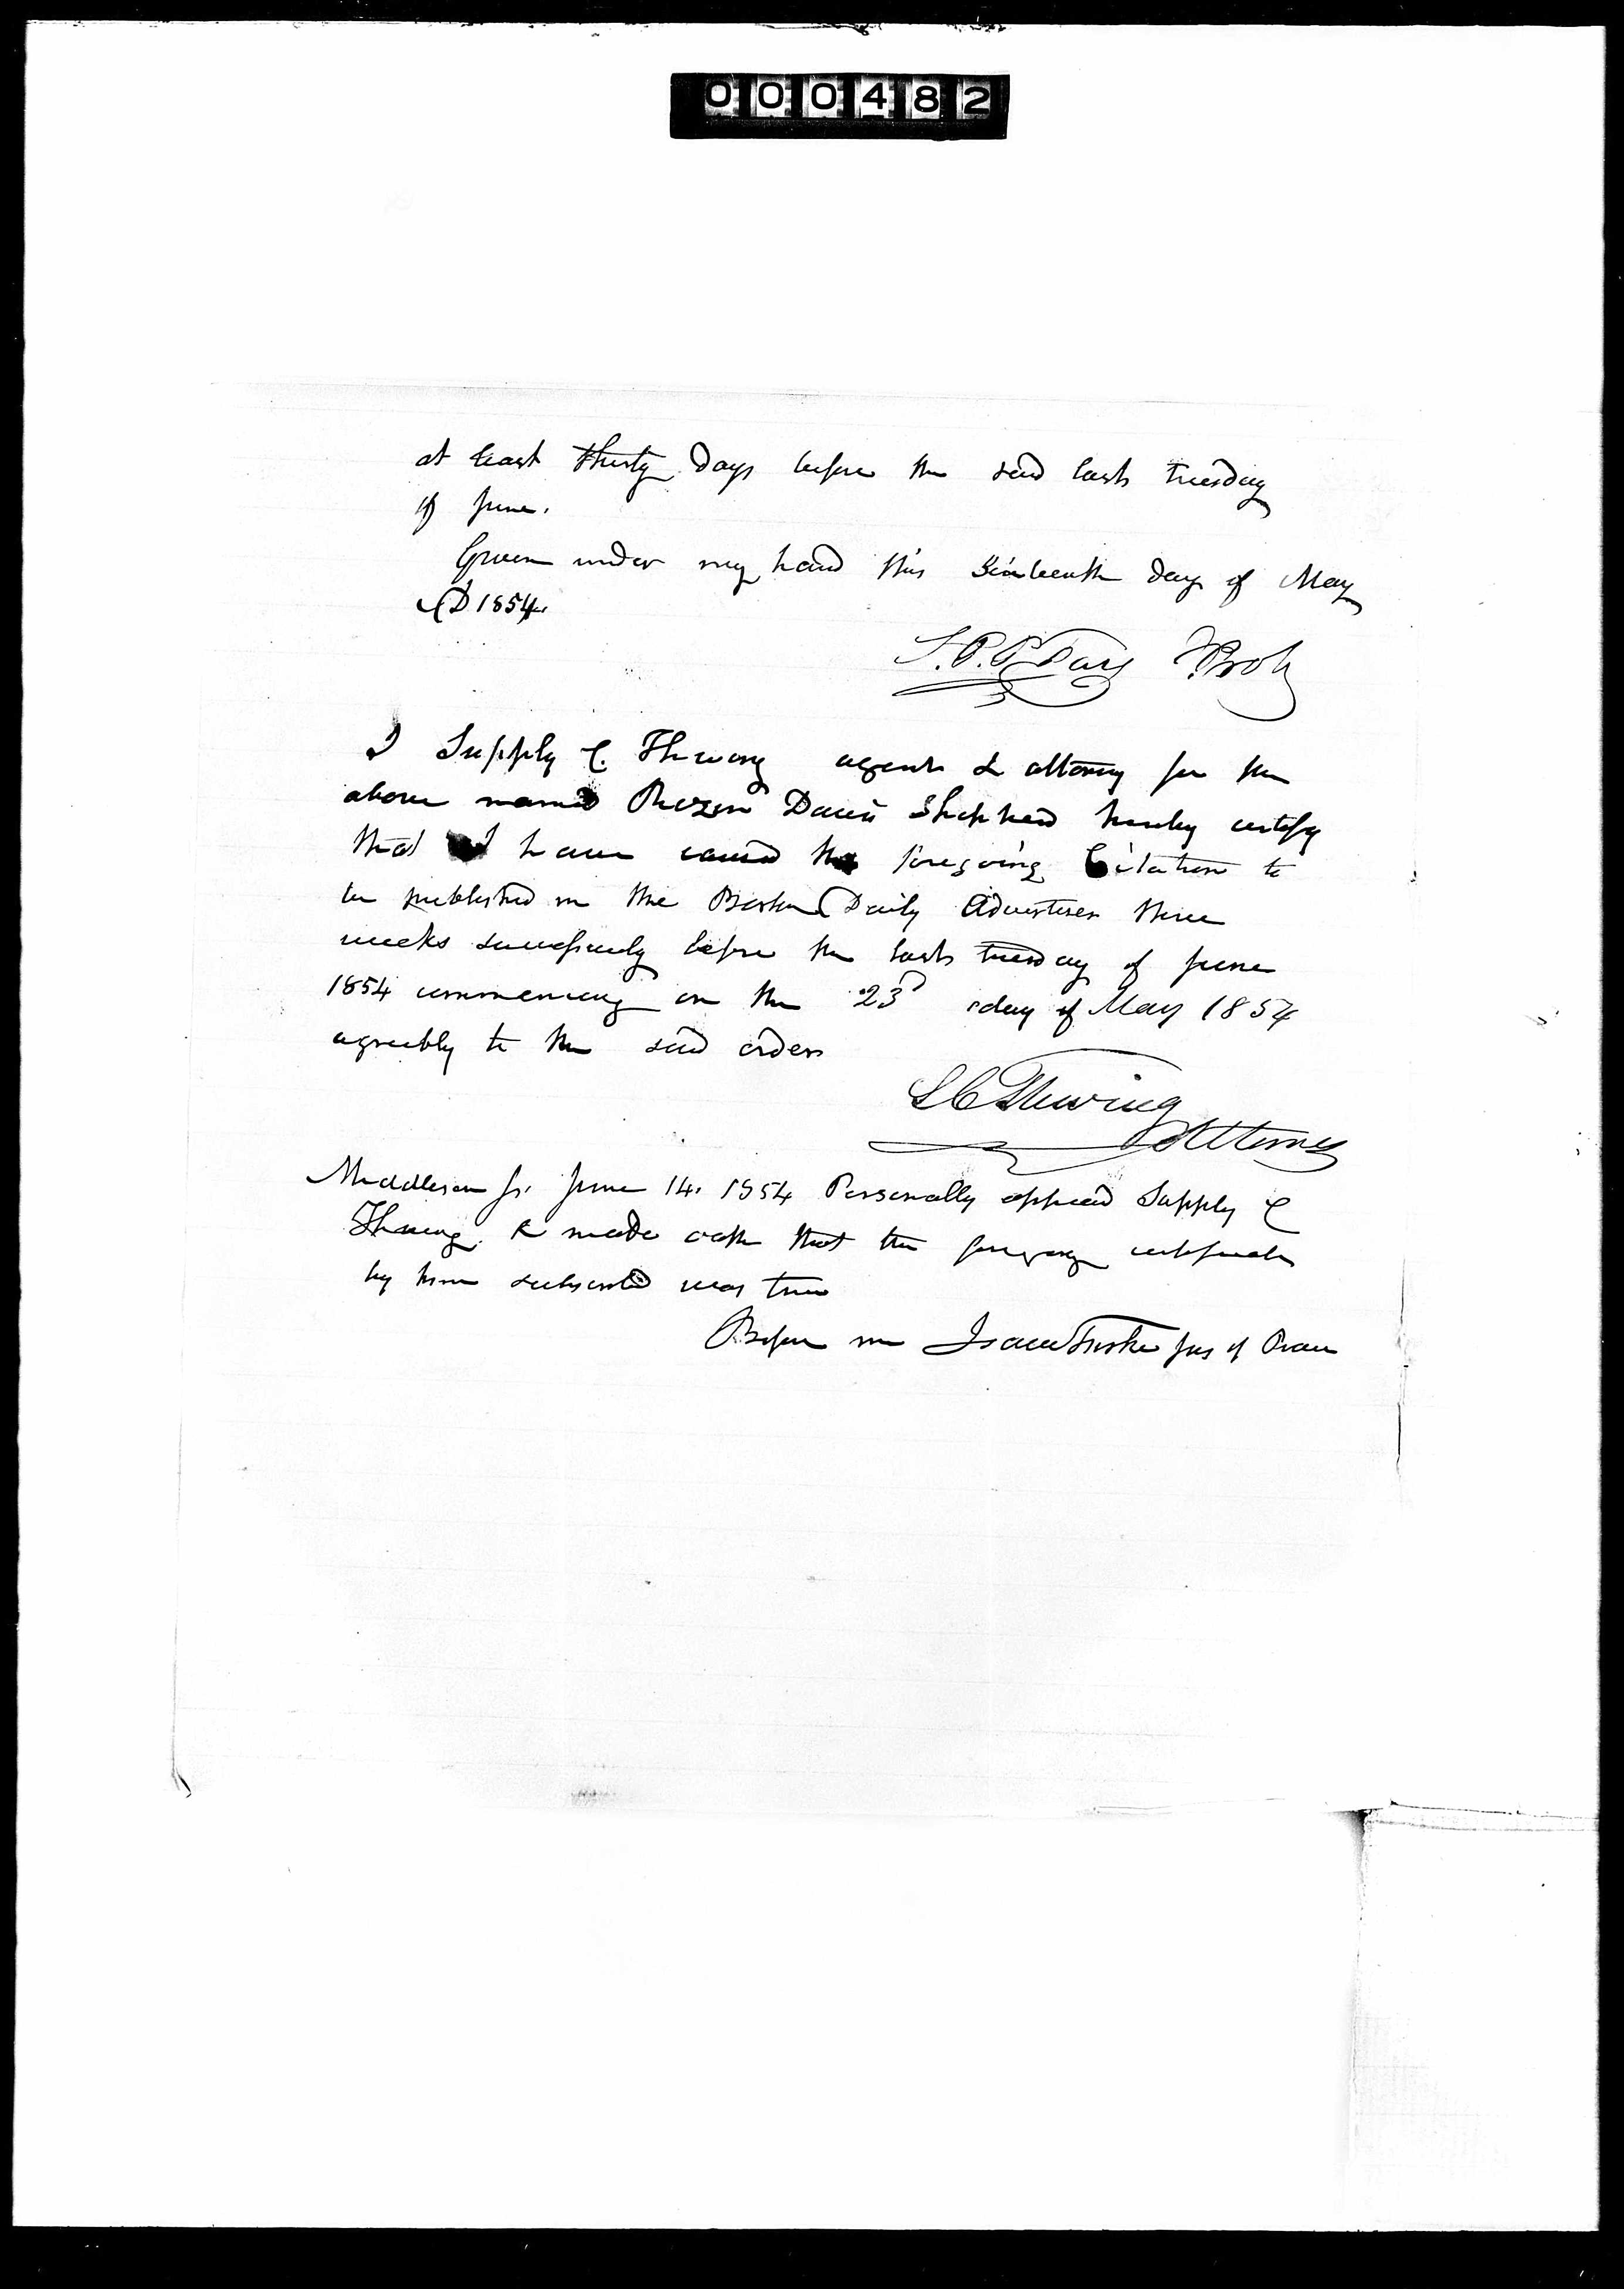 000482
at least thirty days before the said last tuesday
of June.
Given under my hand this Sixteenth day of May
AD 1854.
S.P.P. Fay J. Prob
I Supply C. Thwing agent & attorney for the
above named Rezin Davis Shepherd hereby certify
that I have caused the foregoing Citation to
be published in the Boston Daily Advertiser three
weeks successively before the last tuesday of June
1854 commencing on the 23d day of May 1854
agreeably to the said order
S C Thwing
Attorney
Middlesex ss. June 14. 1854 Personally appeared Supply C
Thwing & made oath that the foregoing certificate
by him subscribed was true
Before me Isaac Fiske Jus of Peace